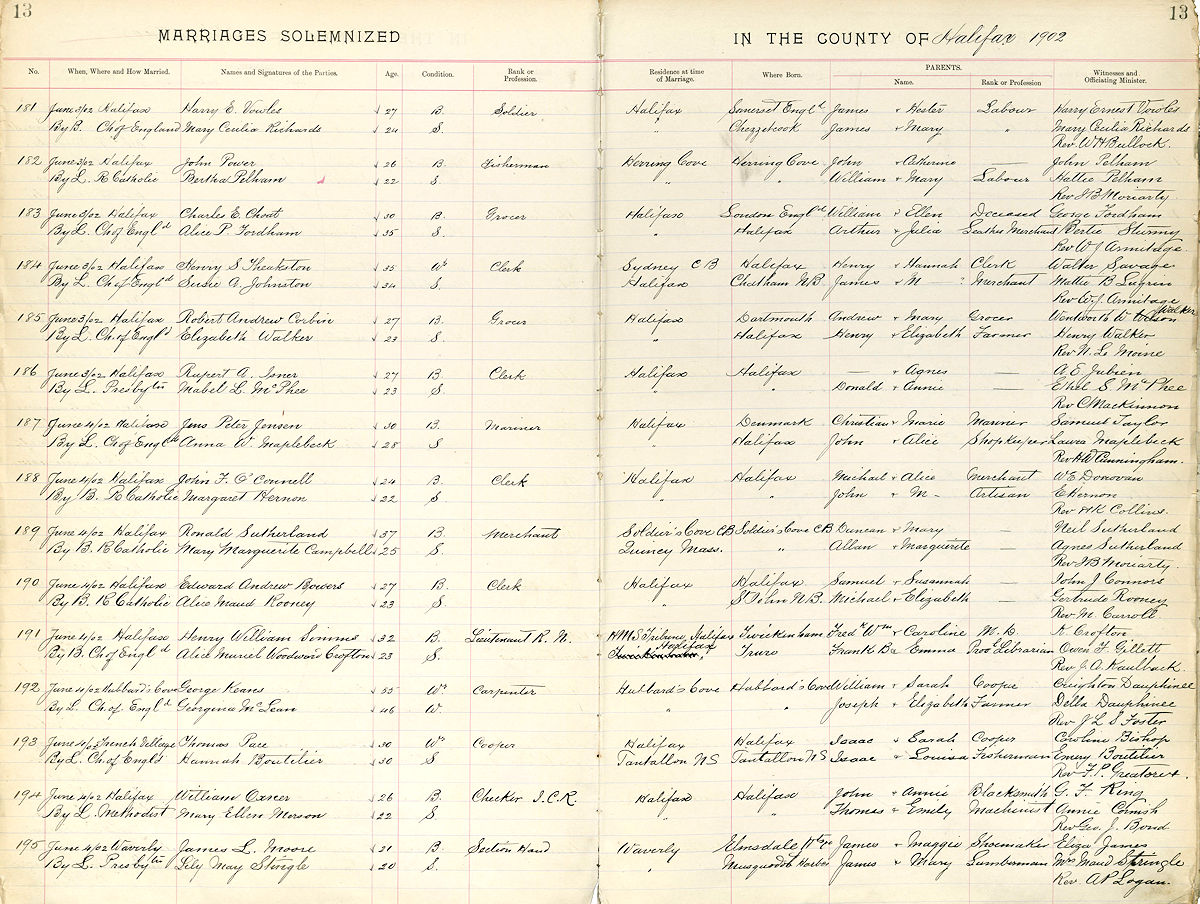 13 13
MARRIAGES SOLEMNIZED IN THE COUNTY OF Halifax 1902
No. When, Where and How Married. Names and Signatures of the Parties. Age. Condition. Rank or Profession. Residence at time of Marriage. Where Born. PARENTS. Name. Rank or Profession Witnesses and Officiating Minister.
181 June 3/02 Halifax Harry E. Vowles 27 B. Soldier Halifax Somerset Engld James + Hester Labour Harry Ernest Vowles
By B. Ch of England Mary Cecilia Richards 24 S. " Chezzetcook James + Mary " Mary Cecilia Richards
Rev. W H Bullock.
182 June 3/02 Halifax John Power 26 B. Fisherman Herring Cove Herring Cove John + Catherine — John Pelham
By L. R Catholic Bertha Pelham 22 S. " " William + Mary Labour Hattie Pelham
Rev J B Moriarty.
183 June 9/02 Halifax Charles E. Choat 30 B. Grocer Halifax London Engld William + Ellen Deceased George Fordham
By L. Ch of Engld Alice P. Fordham 35 S. " Halifax Arthur + Julia Leather Merchant Bertie
Rev W J Armitage.
184 June 3/02 Halifax Henry S Theakston 35 Wr Clerk Sydney C B Halifax Henry + Hannah Clerk Walter Savage
By L. Ch of Engld Susie A. Johnston 34 S. Halifax Chatham N B James + M — Merchant Mattie B
Rev W. J. Armitage
185 June 3/02 Halifax Robert Andrew Corbin 27 B. Grocer Halifax Dartmouth Andrew + Mary Grocer Wentworth W Wilson Walker
By L. Ch. of Engld Elizabeth Walker 23 S. " Halifax Henry + Elizabeth Farmer Henry Walker
Rev N. Le Moine
186 June 3/02 Halifax Rupert A. Isner 27 B. Clerk Halifax Halifax — + Agnes — A. E Jubien
By L. Presbytn Mabel L. McPhee 23 S. " " Donald + Annie — Ethel S. McPhee
Rev C Mackinnon
187 June 4/02 Halifax Jens Peter Jensen 30 B. Mariner Halifax Denmark Christian + Marie Mariner Samuel Taylor
By L. Ch of Engld Anna W. Maplebeck 28 S. " Halifax John + Alice Shopkeeper Laura Maplebeck
Rev H W Cunningham.
188 June 4/02 Halifax John F. O'Connell 24 B. Clerk Halifax Halifax Michael + Alice Merchant W E Donovan
By B. R Catholic Margaret Hernon 22 S. " " John + M — Artisan E Hernon
Rev H K Collins.
189 June 4/02 Halifax Ronald Sutherland 37 B. Merchant Soldier's Cove C B Soldier's Cove C B Duncan + Mary — Neil Sutherland
By B. R Catholic Mary Marguerite Campbell 25 S. Quincy Mass. " Allan + Marguerite — Agnes Sutherland
Rev J B Moriarty.
190 June 4/02 Halifax Edward Andrew Bowers 27 B. Clerk Halifax Halifax Samuel + Susannah — John J Connors
By B. R Catholic Alice Maud Rooney 23 S. " St John N B. Michael + Elizabeth — Gertrude Rooney
Rev. M. Carroll.
191 June 4/02 Halifax Henry William Simms 32 B. Lieutenant R. N. H M S Tribune, Halifax Twickenham Fredk Wm + Caroline M. D. K. Crofton
By B. Ch of Engld Alice Muriel Woodward Crofton 23 S. Halifax Truro Frank Ba Emma Provl Librarian Owen F. Gillett
Rev J. A. Kaulback.
192 June 4/02 Hubbard's Cove George Keans 55 Wr. Carpenter Hubbard's Cove Hubbard's Cove William + Sarah Cooper Creighton Dauphinee
By L. Ch. of Engld Georgina McLean 46 W. " " Joseph + Elizabeth Farmer Della Dauphinee
Rev J L S Foster
193 June 4/02 French Village Thomas Pace 30 Wr Cooper Halifax Halifax Isaac + Sarah Cooper Caroline Bishop
By L. Ch. of Engld Hannah Boutilier 30 S Tantallon N S Tantallon N S Isaac + Louisa Fisherman Emery Boutilier
Rev T. P. Greatorex.
194 June 4/02 Halifax William Oxner 26 B. Checker I. C. R. Halifax Halifax John + Annie Blacksmith G. F. King
By L. Methodist Mary Ellen Morson 22 S. " " Thomas + Emily Machinist Annie Cornish
Rev Geo. J. Bond
195 June 4/02 Waverly James L. Moore 21 B. Section Hand Waverly Elmsdale James + Maggie Shoemaker Eliza James
By L. Presbytn Lily May Stringle 20 S. " Musquodobt Harbor James + Mary Lumberman Mrs Maud Stringle
Rev. A P Logan.